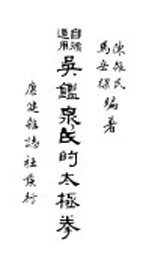 陳振民
馬岳樑
編著
適用
吳鑑泉氏的太極拳
康健雜誌社發行